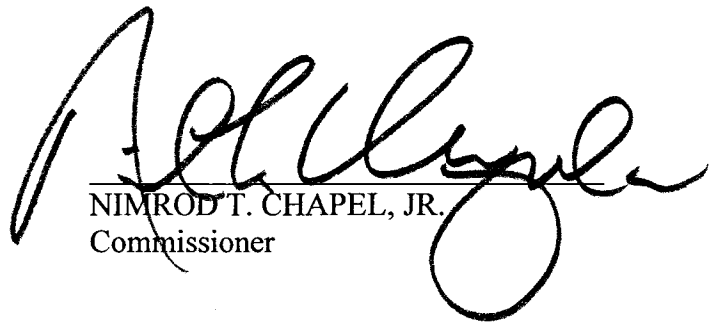 NIMROD T. CHAPEL, JR.
Commissioner